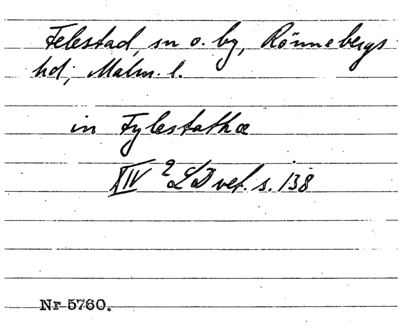 Felestad, sn o. by, Rönnebergs
hd; Malm. l.
in Fylestathæ
XIV 2 LD vet. s. 138
Nr 5760.